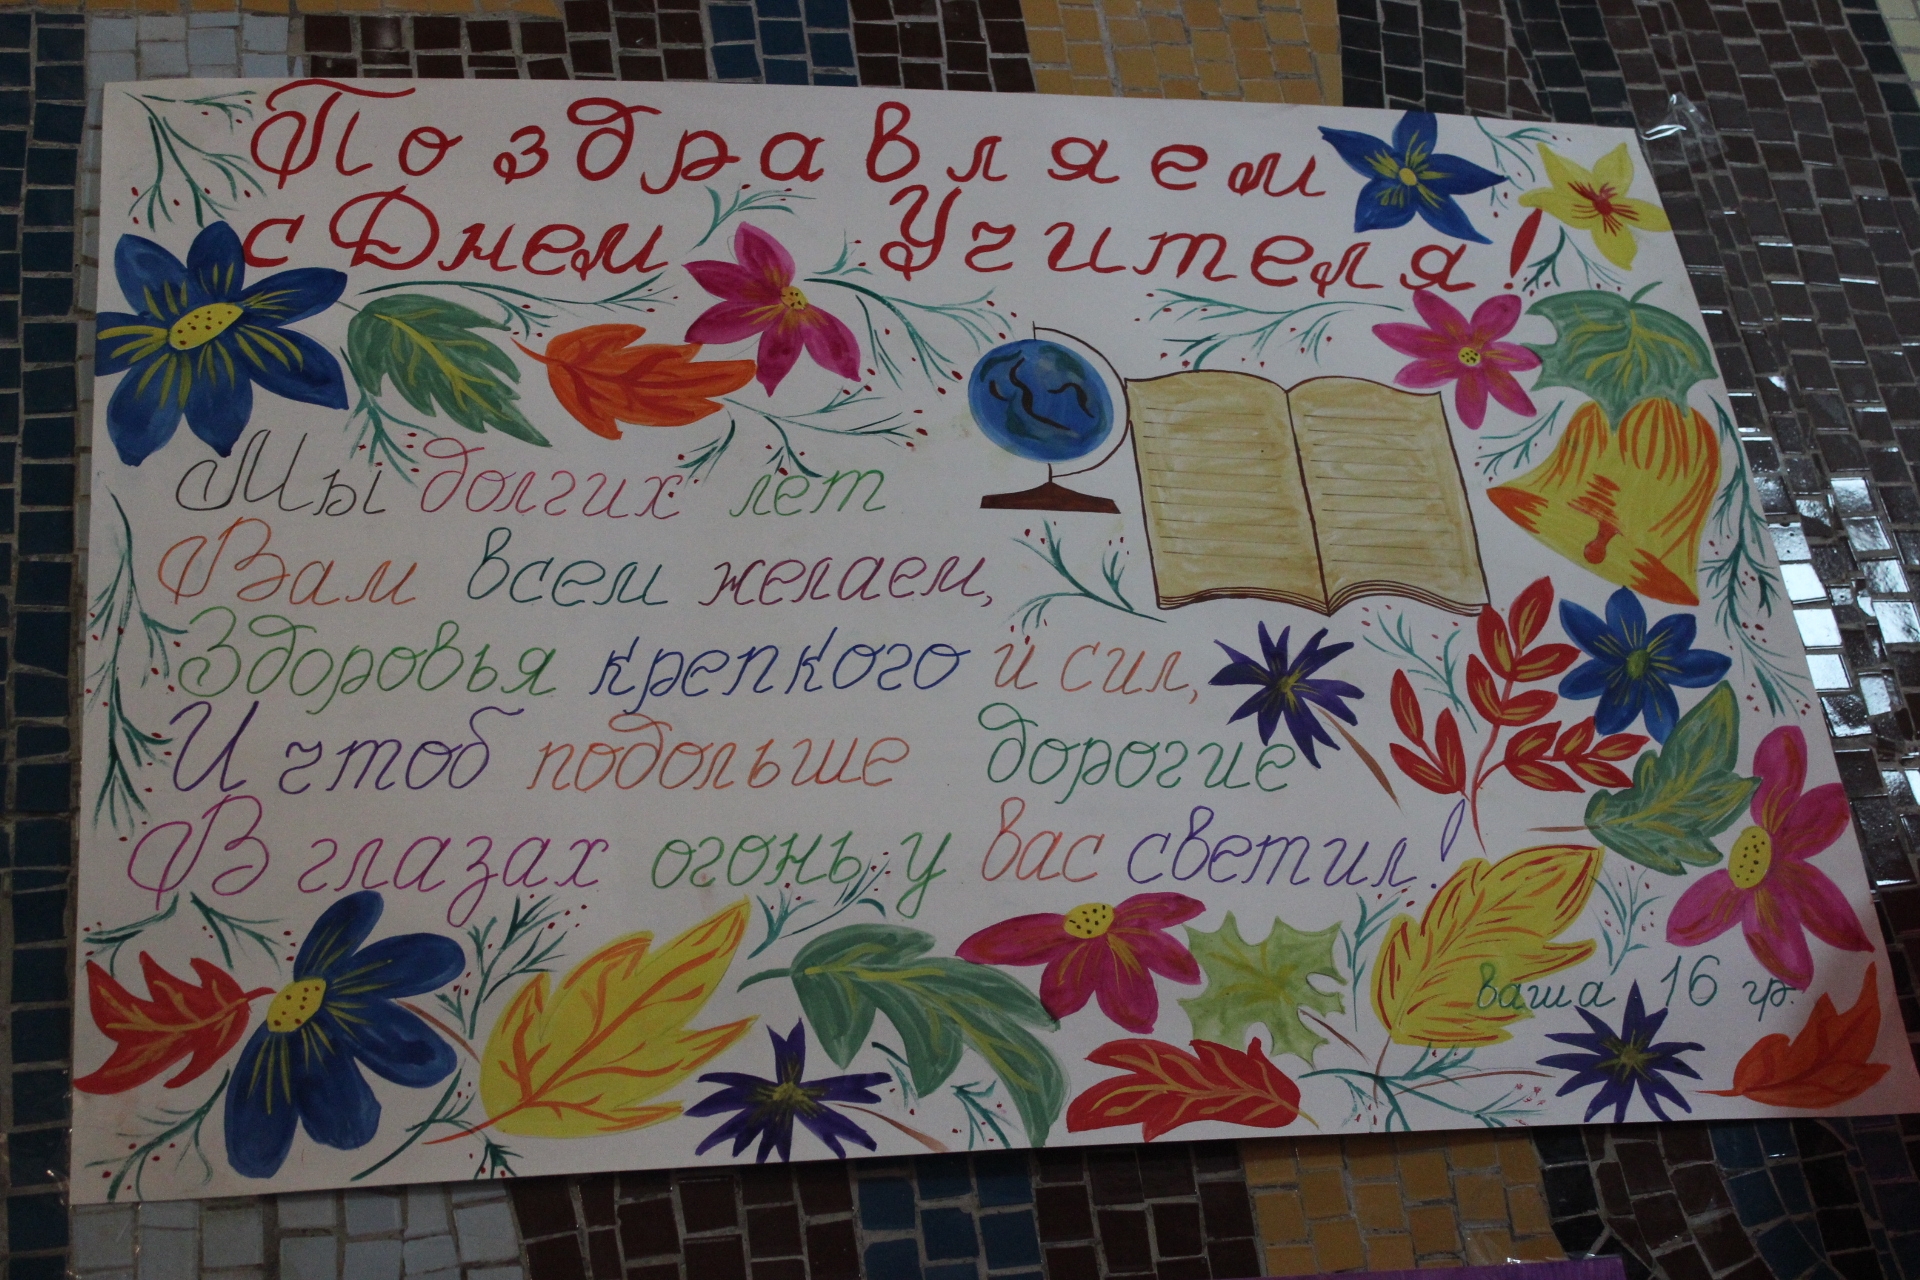 Поздравляем
с Днем Учителя!
Мы долгих лет
Вам всем желаем,
Здоровья крепкого и сил,
И чтоб подольше дорогие
В глазах огонь у вас светил!
ваша 16 гр.